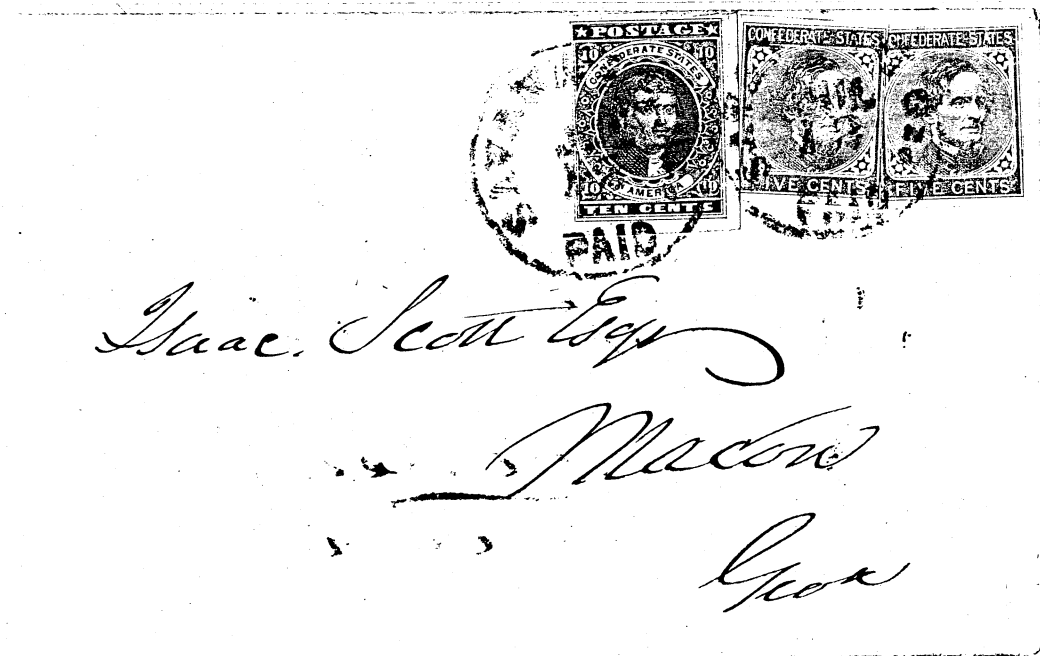 ★POSTAGE★
10 10
CONFEDERATE STATES
OF AMERICA
10 10
TEN CENTS
CONFEDERATE STATES
FIVE CENTS
CONFEDERATE STATES
FIVE CENTS
PAID
PAID
Isaac. Scott Esqr
Macon
Geoa